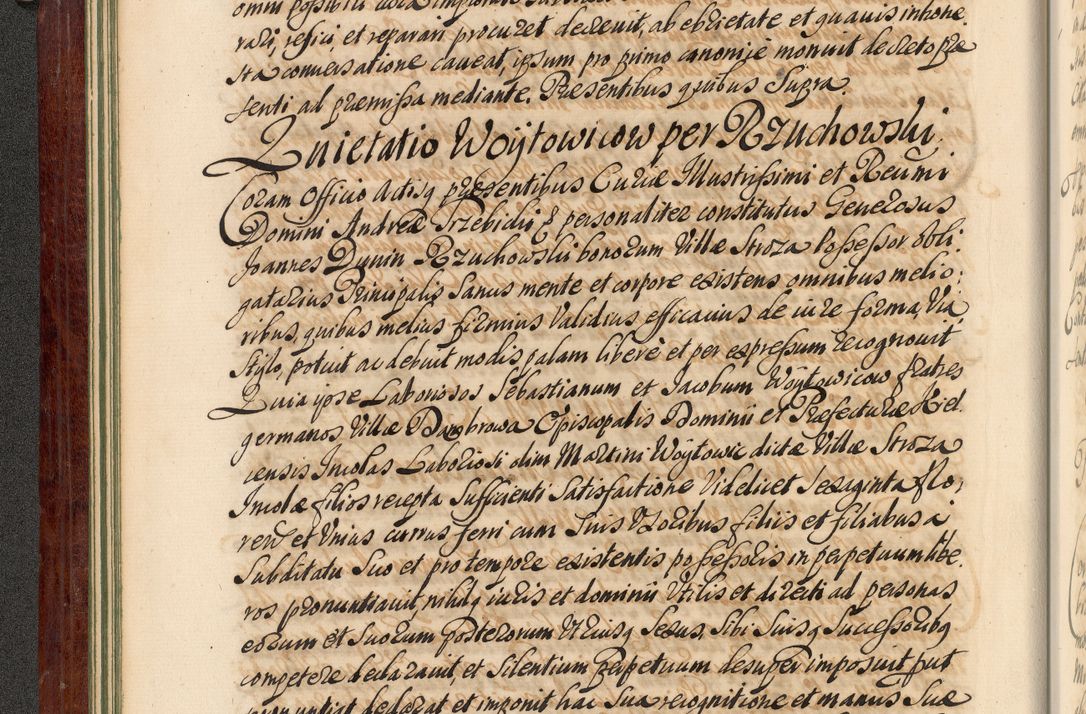 rari, refici, et reparari procuret decrevit, ab ebrietate et quavis inhone
sta conversatione caveat, ipsum pro primo canonice monuit decreto præ
senti ad præmissa mediante. Præsentibus quibus Supra.
Quietatio Woÿtowicow per Rzuchowski.
Coram Officio Actisq præsentibus Curiæ Illustrissimi et Reũmi
Domini Andreæ Trzebicki & personaliter constitutus Generosus
Joannes Dunin Rzuchowski bonorum Villæ Stroza Possessor obli
gatarius Principalis Sanus mente et corpore existens omnibus melio
ribus, quibus melius firmius Validius efficacius de iure forma, Via,
Stylo, potuit ac debuit modis, palam liberè et per expressum recognovit
Quia ipse Laboriosos Sebastianum et Jacobum Woÿtowicow fratres
germanos Villæ Dambrowa Episcopalis Dominii et Præfecturæ Kiel
censis Incolas Laboriosi olim Martini Woÿtowic dictæ Villæ Stroza
Incolæ filios recepta Sufficienti Satisfactione Videlicet Sexaginta flo
ren et Unius currus ferri cum Suis Uxoribus filiis et filiabus a
Subditatu Suo et pro tempore existentis possessoris in perpetuum libe
ros pronuntiavit, nihilq iuris et dominii Utilis et directi ad personas
eorum et Suorum posterorum Utriusq Sexus, Sibi Suisq Successoribq
competere declaravit, et Silentium Perpetuum desuper imposuit, put
pronuntiat declarat et imponit hac Sua recognitione et manus Suæ